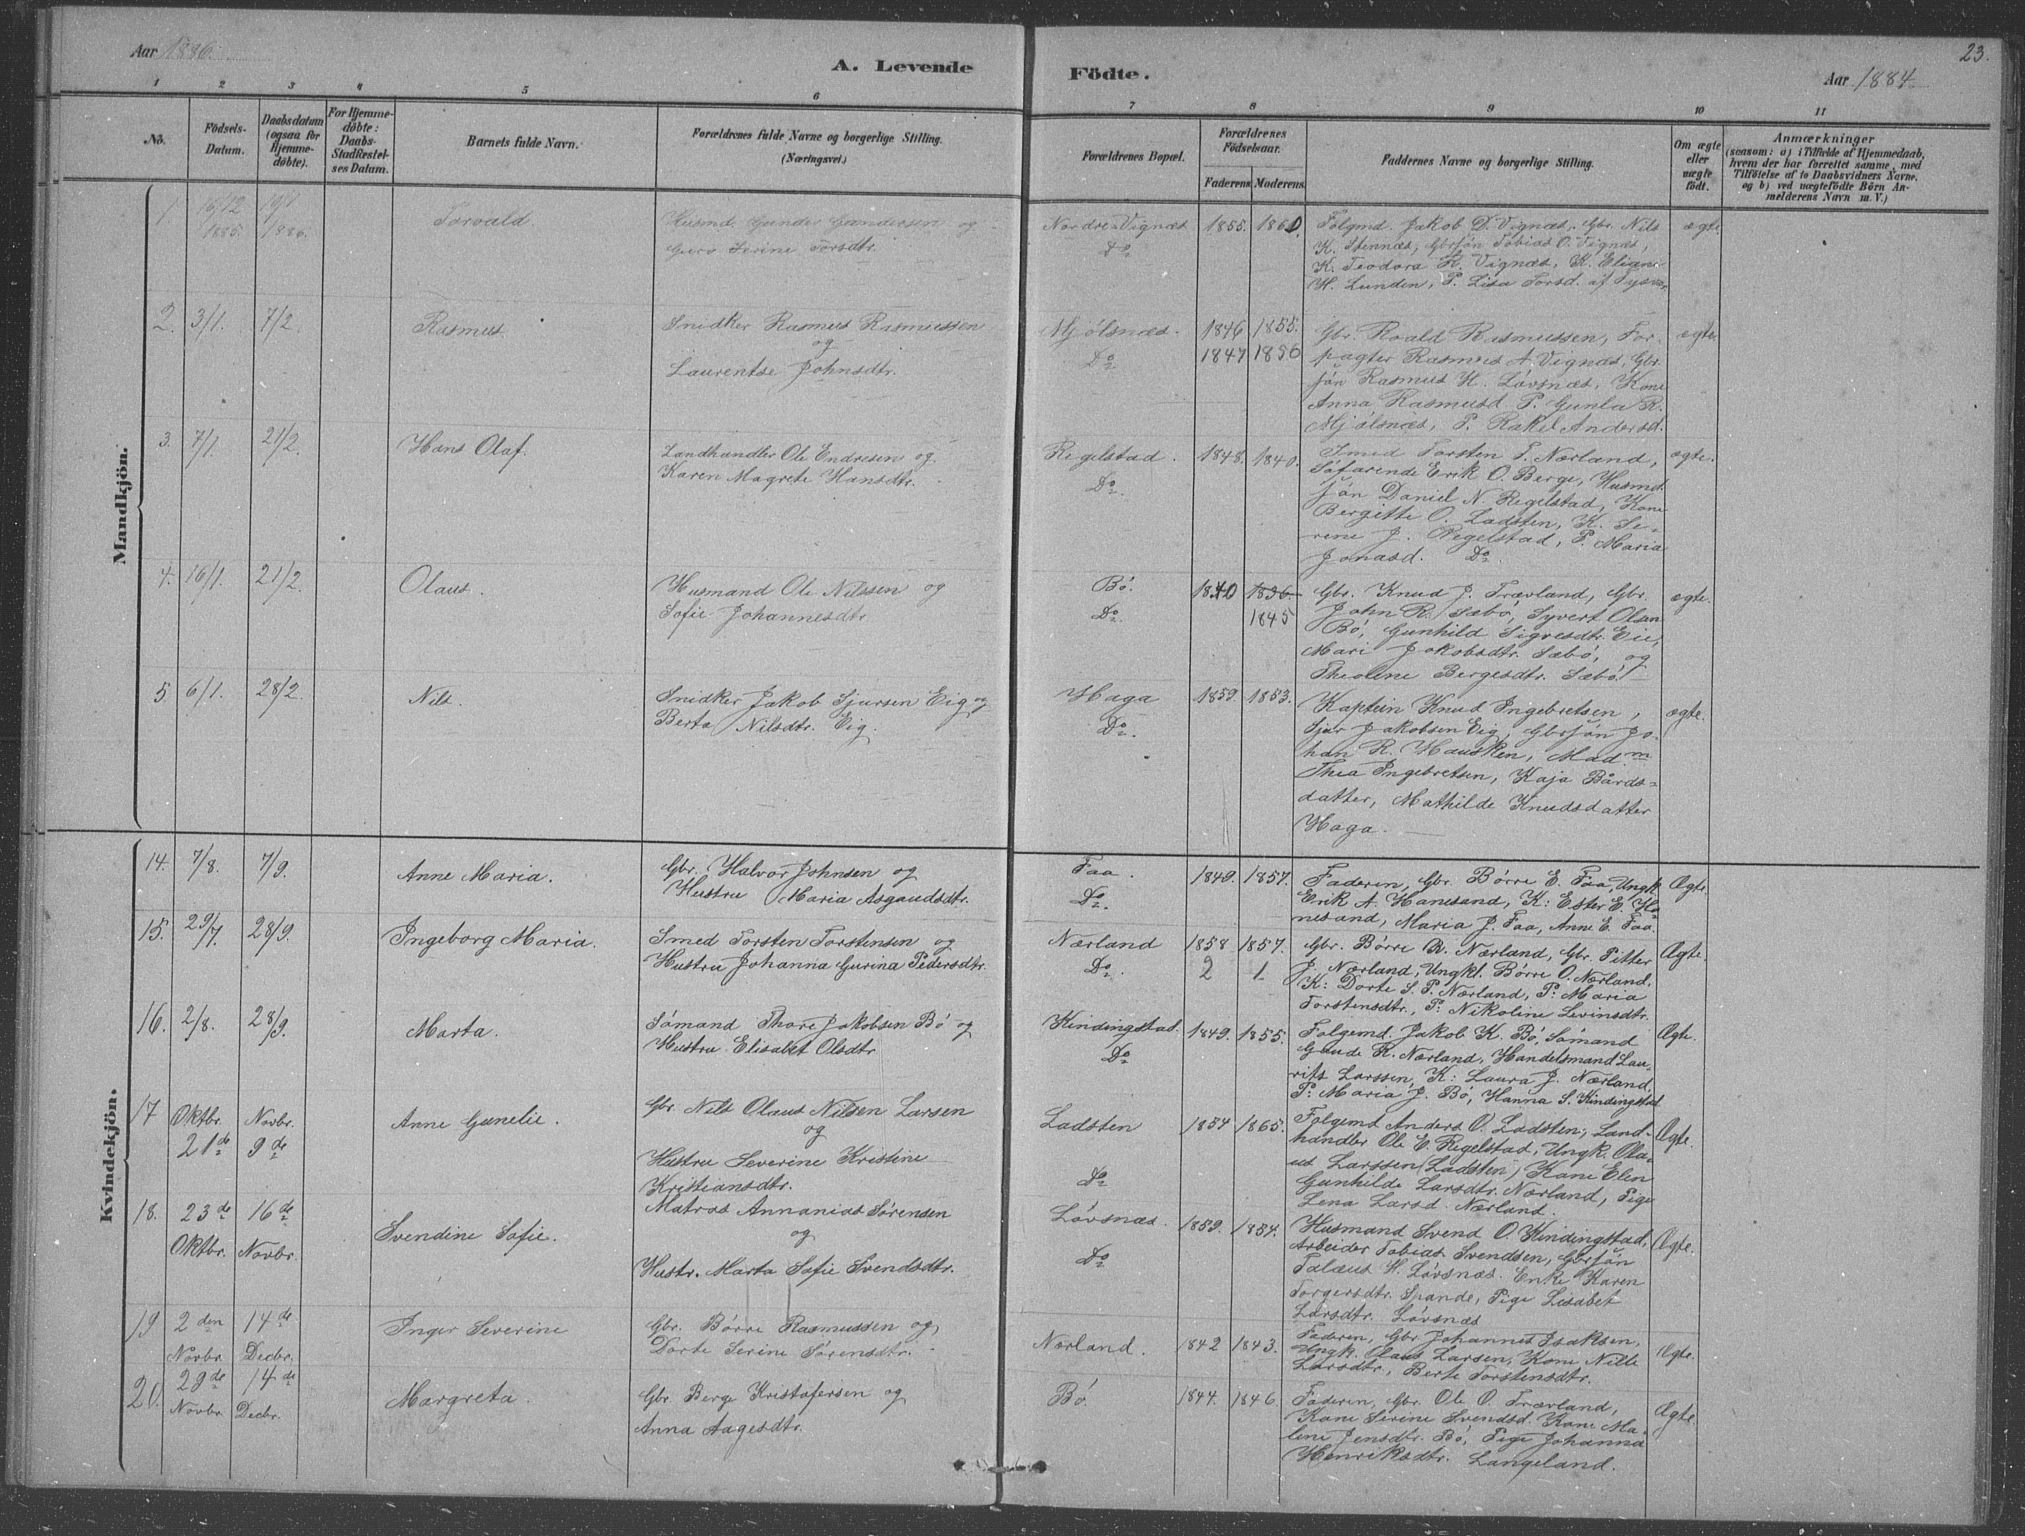 Aar 1886.
A. Levende Födte.
23.
Aar 1884
1 2 3 4 5 6 7 8 9 10 11
No.
Födsels-Datum.
Daabsdatum (ogsaa for Hjemme-döbte).
For Hjemme-döbte: Daabs-Stadfæstel-ses Datum.
Barnets fulde Navn.
Forældrenes fulde Navne og borgerlige Stilling. (Næringsvei.)
Forældrenes Bopæl.
Forældrenes Födselsaar.
Faderens Moderens
Faddernes Navne og borgerlige Stilling.
Om ægte eller uægte födt.
Anmærkninger
(saasom: a) i Tilfælde af Hjemmedaab,
hvem der har forrettet samme, med
Tilföielse af to Daabsvidners Navne,
og b) ved uægtefödte Börn An-
melderens Navn m. V.)
Mandkjön.
1. 16/12 1885. 19/1 1886. Torvald
Husmd. Gunder Gundersen og
Guro Serine Torsdtr.
Nordre Vignæs
Do
1855. 1860.
Folgmd. Jakob D. Vignæs, Gbr. Nils
K. Stennæs, Gbrsön Tobias O. Vignæs,
K. Teodora R. Vignæs, K. Eliane
H. Lunden, P. Lisa Torsd. af Tysvær.
ægte
2. 3/1. 7/2. Rasmus
Snidker Rasmus Rasmussen
og
Laurentse Johnsdtr.
Mjölsnæs.
Do
1846 1855.
1847 1856
Gbr. Roald Rasmussen, For-
pagter Rasmus A. Vignæs, Gbr.
sön Rasmus H. Lövsnæs, Kone
Anna Rasmusd. P. Gunla R.
Mjölsnæs, P. Rakel Andersd.
ægte.
3. 7/1. 21/2. Hans Olaf.
Landhandler Ole Endresen og
Karen Magrete Hansdtr.
Regelstad.
Do.
1848. 1840.
Smed Torsten T. Nærland,
Söfarende Erik O. Berge, Husmd
sön Daniel N. Regelstad, Kone
Bergitte O. Ladsten, K. Se-
rene J. Regelstad, P. Maria
Jonasd. Do
ægte.
4. 16/1. 21/2. Olaus.
Husmand Ole Nilssen og
Sofie Johannesdtr
Bö.
Do.
1840 1836
1845
Gbr. Knud J. Trævland, Gbr.
John R. Sæbö, Syvert Olsen
Bö, Gunhild Sigvesdtr. Eie,
Mari Jakobsdtr. Sæbö, og
Theoline Bergesdtr. Sæbö.
ægte.
5 6/1. 28/2. Nils.
Snidker Jakob Sjursen Eig og
Berta Nilsdtr. Eig.
Haga
Do.
1859. 1853.
Kaptein Knud Ingebretsen,
Sjur Jakobsen Eig, Gbrsön Jo-
han R. Hausken, Mad.m
Thea Ingebretsen, Kaja Bårds-
datter, Mathilde Knudsdatter
Haga.
ægte.
Kvindekjön.
14. 7/8. 7/9. Anne Maria.
Gbr. Halvor Johnsen og
Hustru Maria Asgautsdtr.
Faa.
Do.
1849. 1857.
Faderen, Gbr. Börre E. Faa, Ungk.
Erik A. Hanesand, K: Ester E. Ha-
nesand, Maria J. Faa, Anne E. Faa.
Ægte.
15. 29/7. 28/9. Ingeborg Maria.
Smed Torsten Torstensen og
Hustru Johanna Gurina Pedersdtr.
Nærland
Do.
1858 1857.
2 1
Gbr. Börre R. Nærland, Gbr. Pitter
J. Nærland, Ungkl. Börre O. Nærland.
K: Dorte S. P. Nærland, P: Maria
Torstensdtr., P. Nikoline Levinsdtr.
Ægte.
16. 2/8. 28/9. Marta.
Sömand Thore Jakobsen Bö og
Hustru Elisabet Olsdtr
Kindingstad.
Do
1849. 1855.
Folgemd Jakob K. Bö, Sömand
Gaude R. Nærland, Handelsmand Lau-
rits Larssen, K: Laura J. Nærland,
P: Maria J. Bö, Hanna S. Kindingstad
Ægte.
17 Oktbr. 21de Novbr. 9de Anne Gunelie.
Gbr. Nils Olaus Nilsen Larsen
og
Hustru Severine Kristine
Kristiansdtr.
Ladsten
Do
1854 1865.
Folgemd Anders O. Ladsten, Land-
handler Ole E. Regelstad, Ungk. Ola-
us Larssen (Ladsten), Kone Elen
Gunhilde Larsdtr. Nærland, Pige
Lena Larsd. Nærland.
Ægte.
18. 23de Oktbr. 16de Novbr. Svendine Sofie.
Matros Annanias Sörensen
og
Hustr. Marta Sofie Svendsdtr.
Lövsnæs.
Do
1859. 1854.
Husmand Svend O. Kindingstad,
Arbeider Tobias Svendsen, Gbrsön
Talæus H. Lövsnæs. Enke Karen
Torgersdtr. Spande, Pige Lisabet
Larsdtr. Lövsnæs
Ægte.
19 2den Novbr. 14de Decbr. Inger Severine
Gbr. Börre Rasmussen og
Dorte Serine Sörensdtr.
Nærland.
1842 1843.
Faderen, Gbr. Johannes Isaksen,
Ungk. Olaus Larsen, Kone Nille
Larsdtr, Berte Torstensdtr.
Ægte.
20. 28de Novbr. 14de Decbr. Margreta.
Gbr. Berge Kristofersen og
Anna Aagesdtr.
Bö.
1844. 1846.
Faderen, Gbr. Ole O. Trævland,
Kone Serine Svendsd. Kone Ma-
lene Jensdtr. Bö, Pige Johanna
Henriksdtr. Langeland.
Ægte.